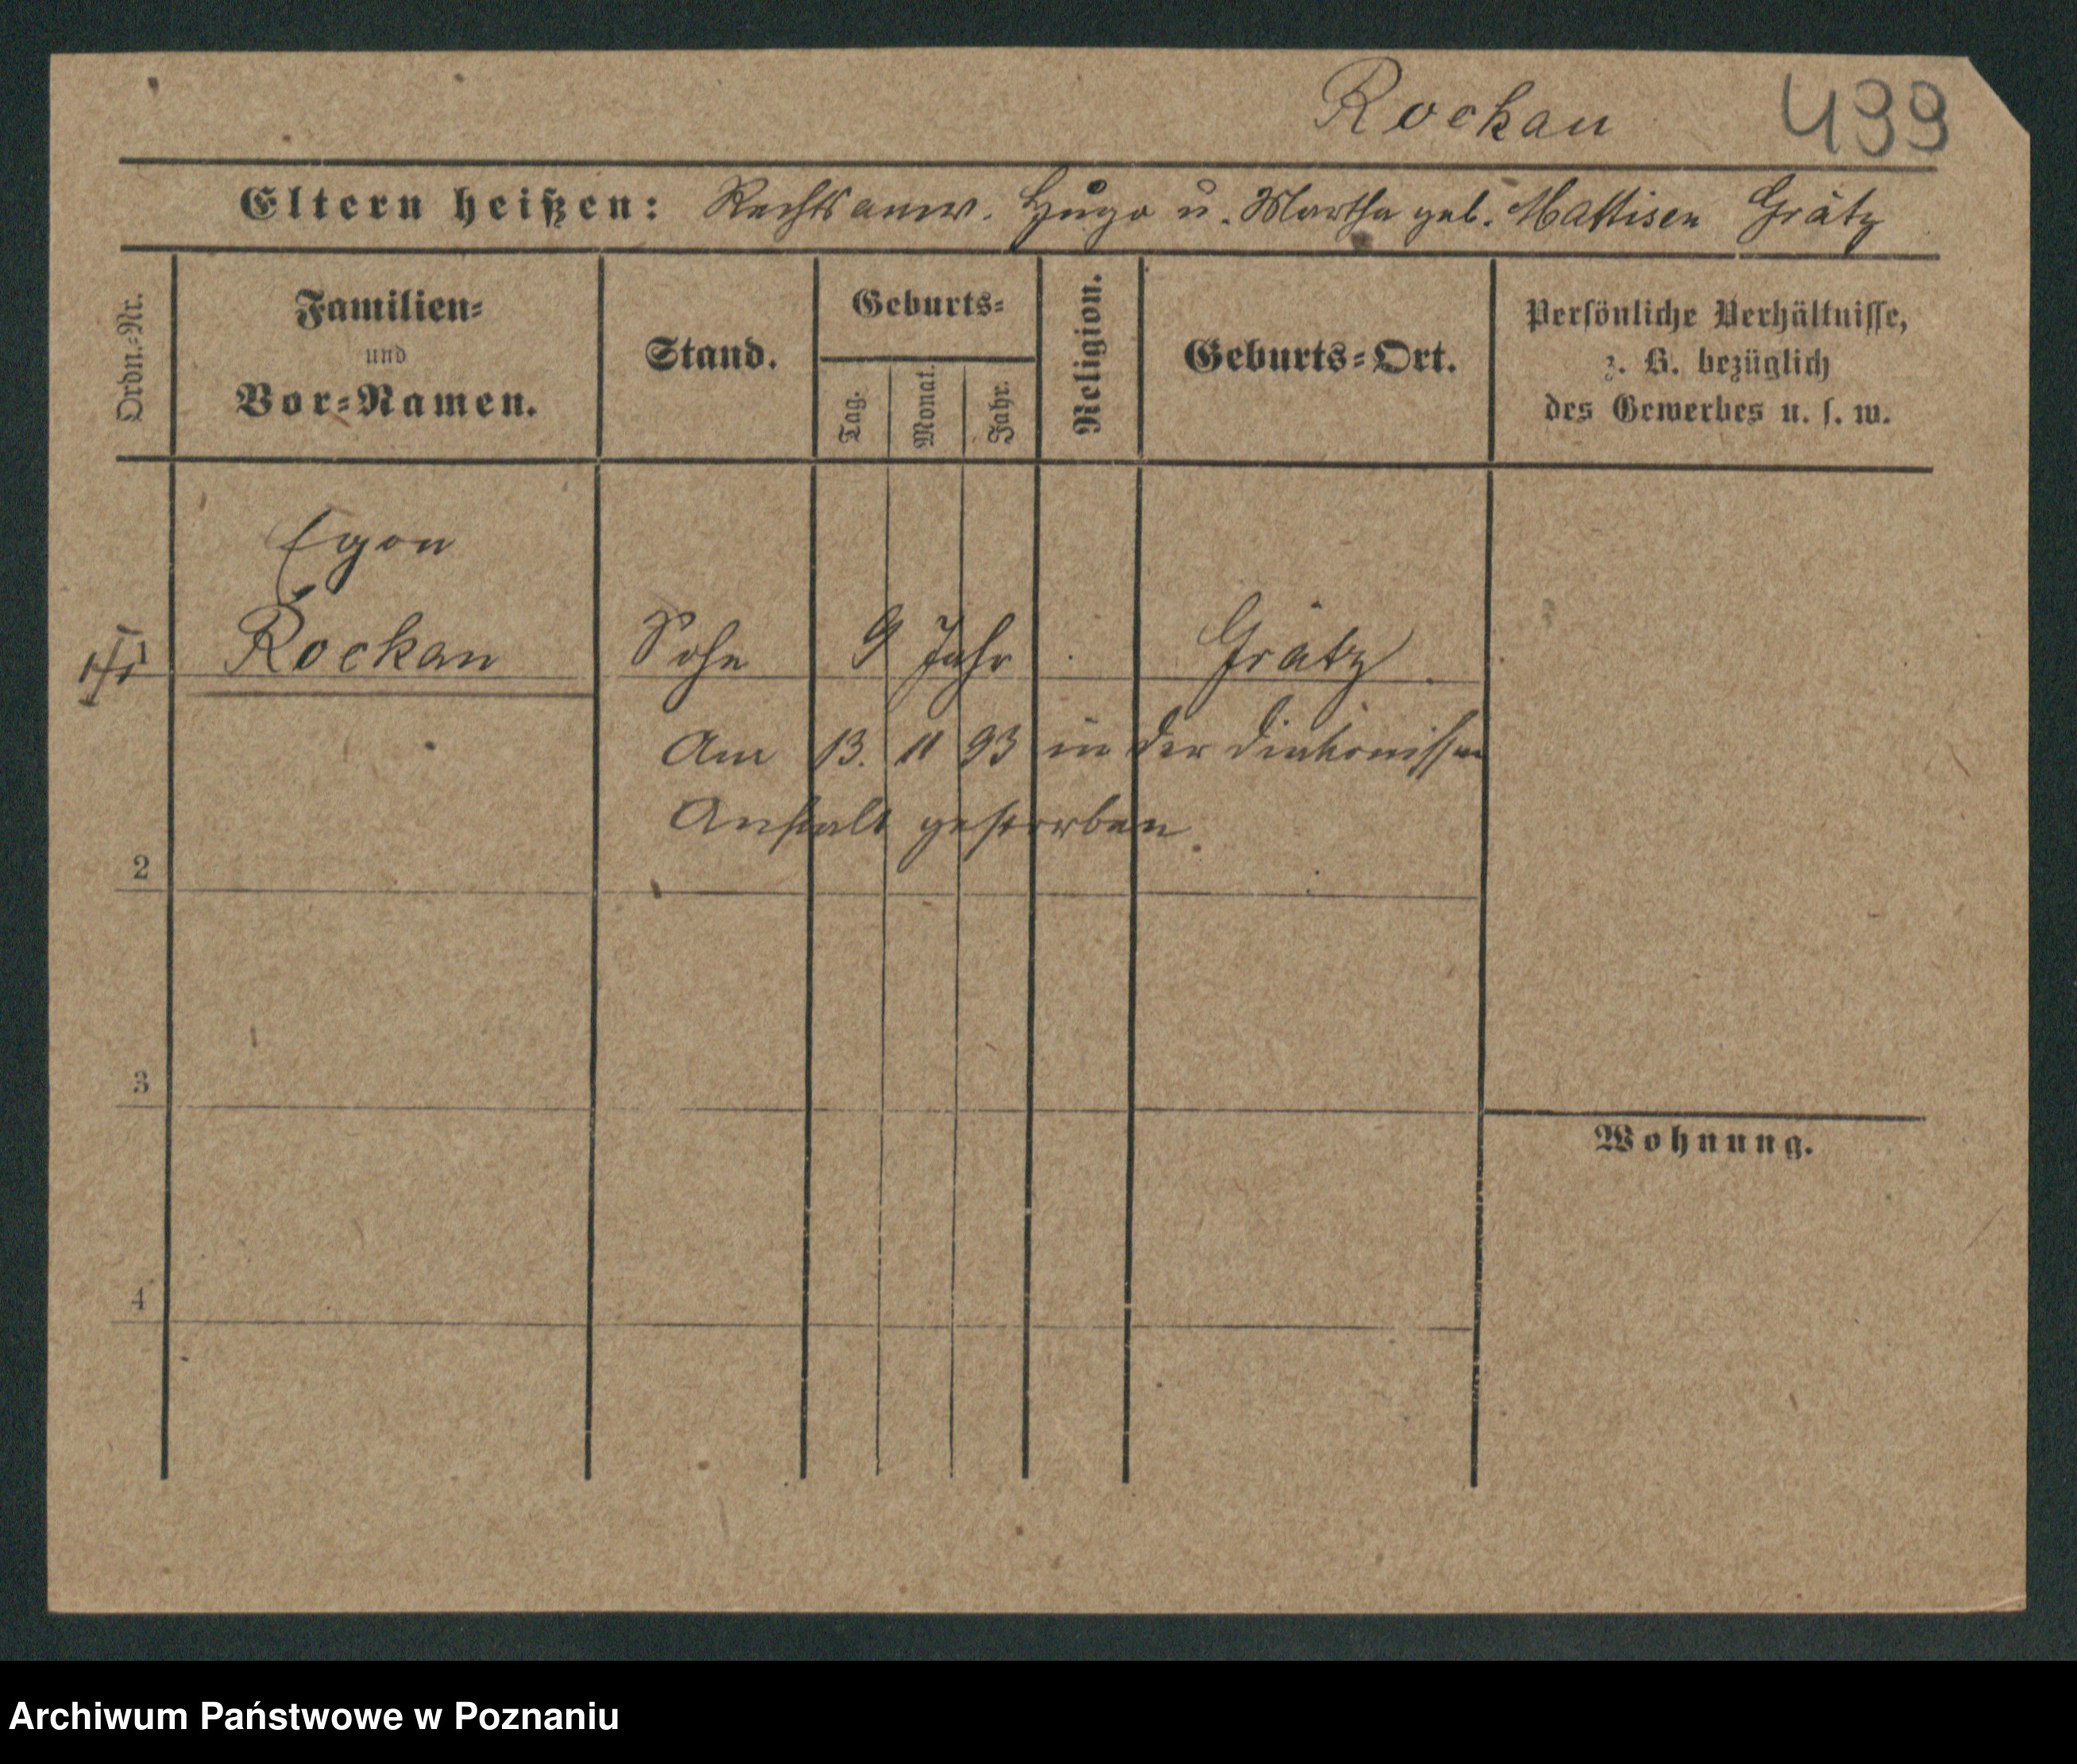 Rockau 499
Eltern heißen: Rechtsanw. Hugo u. Martha geb. Mattisen Grätz
Ordn.-Nr.
Familien-
und
Vor-Namen.
Stand.
Geburts-
Tag.
Monat.
Jahr.
Religion.
Geburts-Ort.
Persönliche Verhältnisse,
z. B. bezüglich
des Gewerbes u. s. w.
Egon
1 Rockau Sohn 9 Jahr Grätz
Am 13. 11 93 in der Diakonissen
Anstalt gestorben.
2
3
Wohnung.
4
Archiwum Państwowe w Poznaniu